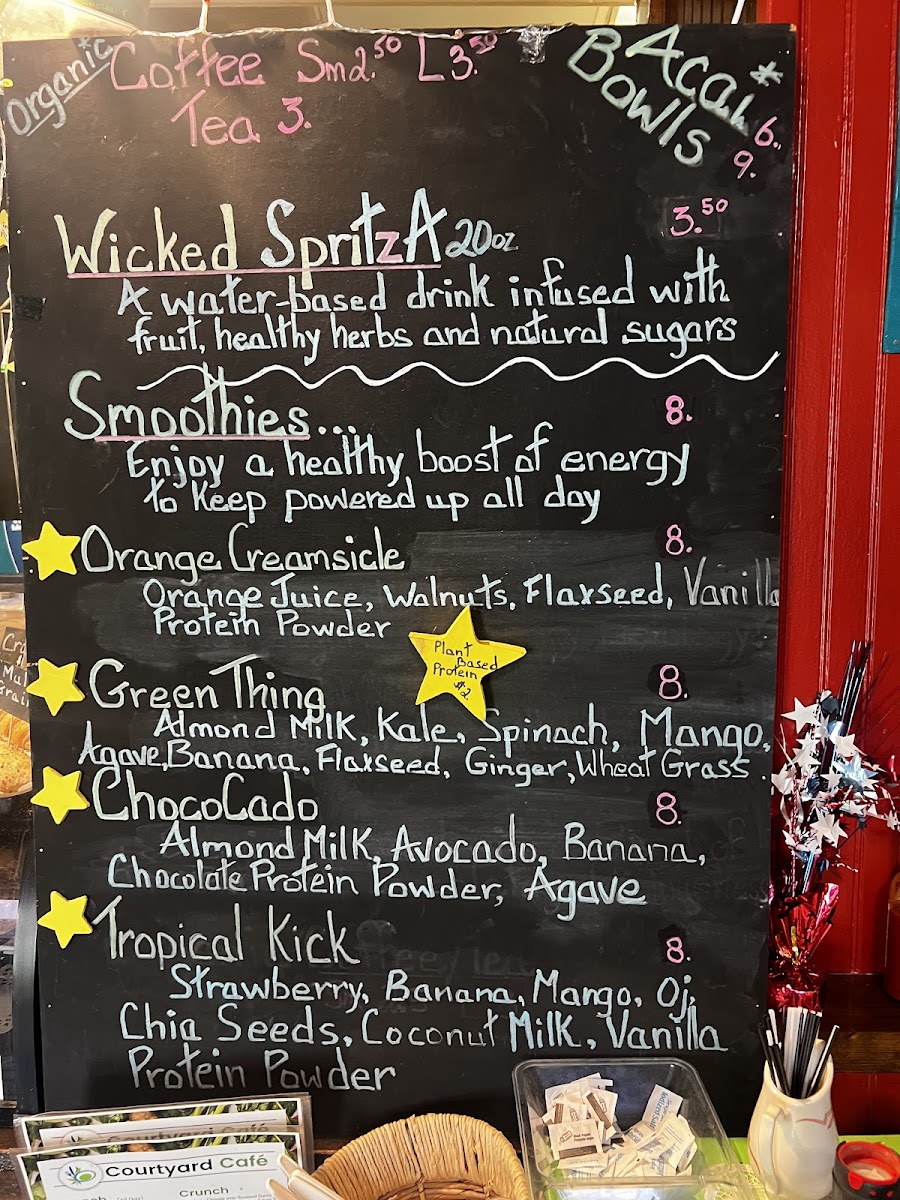 Organic
Coffee Sm 2.50 L 3.50
Tea 3.
Acaih* Bowls 6.
9.
Wicked SpritzA 20oz. 3.50
A water-based drink infused with
fruit, healthy herbs and natural sugars
Smoothies... 8.
Enjoy a healthy boost of energy
to keep powered up all day
Orange Creamsicle 8.
Orange Juice, Walnuts, Flaxseed, Vanilla
Protein Powder
Plant
Based
Protein
$2.
Green Thing 8.
Almond Milk, Kale, Spinach, Mango,
Agave, Banana, Flaxseed, Ginger, Wheat Grass.
ChocoCado 8.
Almond Milk, Avocado, Banana,
Chocolate Protein Powder, Agave
Tropical Kick 8.
Strawberry, Banana, Mango, Oj,
Chia Seeds, Coconut Milk, Vanilla
Protein Powder
Courtyard Café
Courtyard Café
Crunch